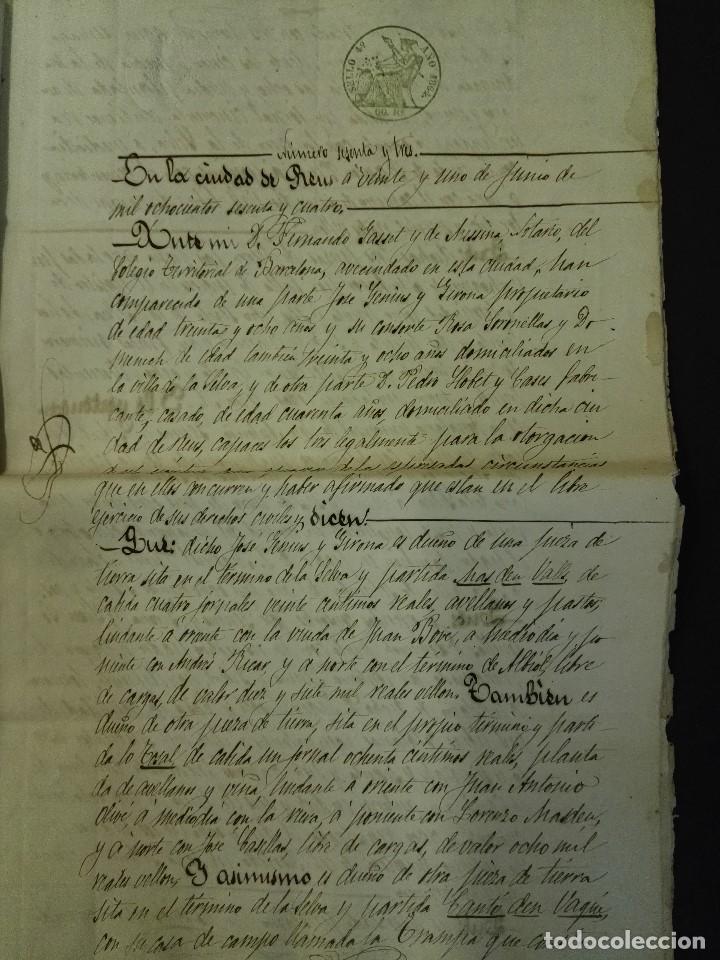 SELLO 4º AÑO 1864.
60. Rs
Número sesenta y tres.
En la ciudad de Reus a veinte y uno de Junio de
mil ochocientos sesenta y cuatro.
Ante mi D. Fernando Gasset y de Messina, Notario, del
Colegio Territorial de Barcelona, avecindado en esta ciudad, han
comparecido de una parte José Genius y Girona propietario
de edad treinta y ocho años y su consorte Rosa Soronellas y Do-
menech de edad tambien treinta y ocho años domiciliados en
la villa de la Selva, y de otra parte D. Pedro Llobet y Cases fabri-
cante, casado, de edad cuarenta años, domiciliado en dicha ciu
dad de Reus, capaces los tres legalmente para la otorgacion
circunstancias
que en ellos concurren y haber afirmado que estan en el libre
ejercicio de sus derechos civiles y, dicen:
Que: dicho José Genius y Girona es dueño de una pieza de
tierra sita en el termino de la Selva y partida Mas den Valls, de
cabida cuatro jornales veinte céntimos reales, avellanos y pastos,
lindante á oriente con la viuda de Juan Bové, a mediodia y po
niente con Andrés Ricar y á norte con el término de Albiol, libre
de cargas, de valor diez y siete mil reales vellon. Tambien es
dueño de otra pieza de tierra, sita en el propio termino y parti-
da lo Tosal, de cabida un jornal ochenta céntimos reales, planta
da de avellanos y viña, lindante á oriente con Juan Antonio
Olivé, a mediodia con la viuva, á poniente con Lorenzo Masdeu,
y á norte con José Casellas, libre de cargas, de valor ocho mil
reales vellon. Y asimismo es dueño de otra pieza de tierra
sita en el término de la Selva y partida Cantó den Vaqué,
con su casa de campo llamada la Trampa que
todocoleccion